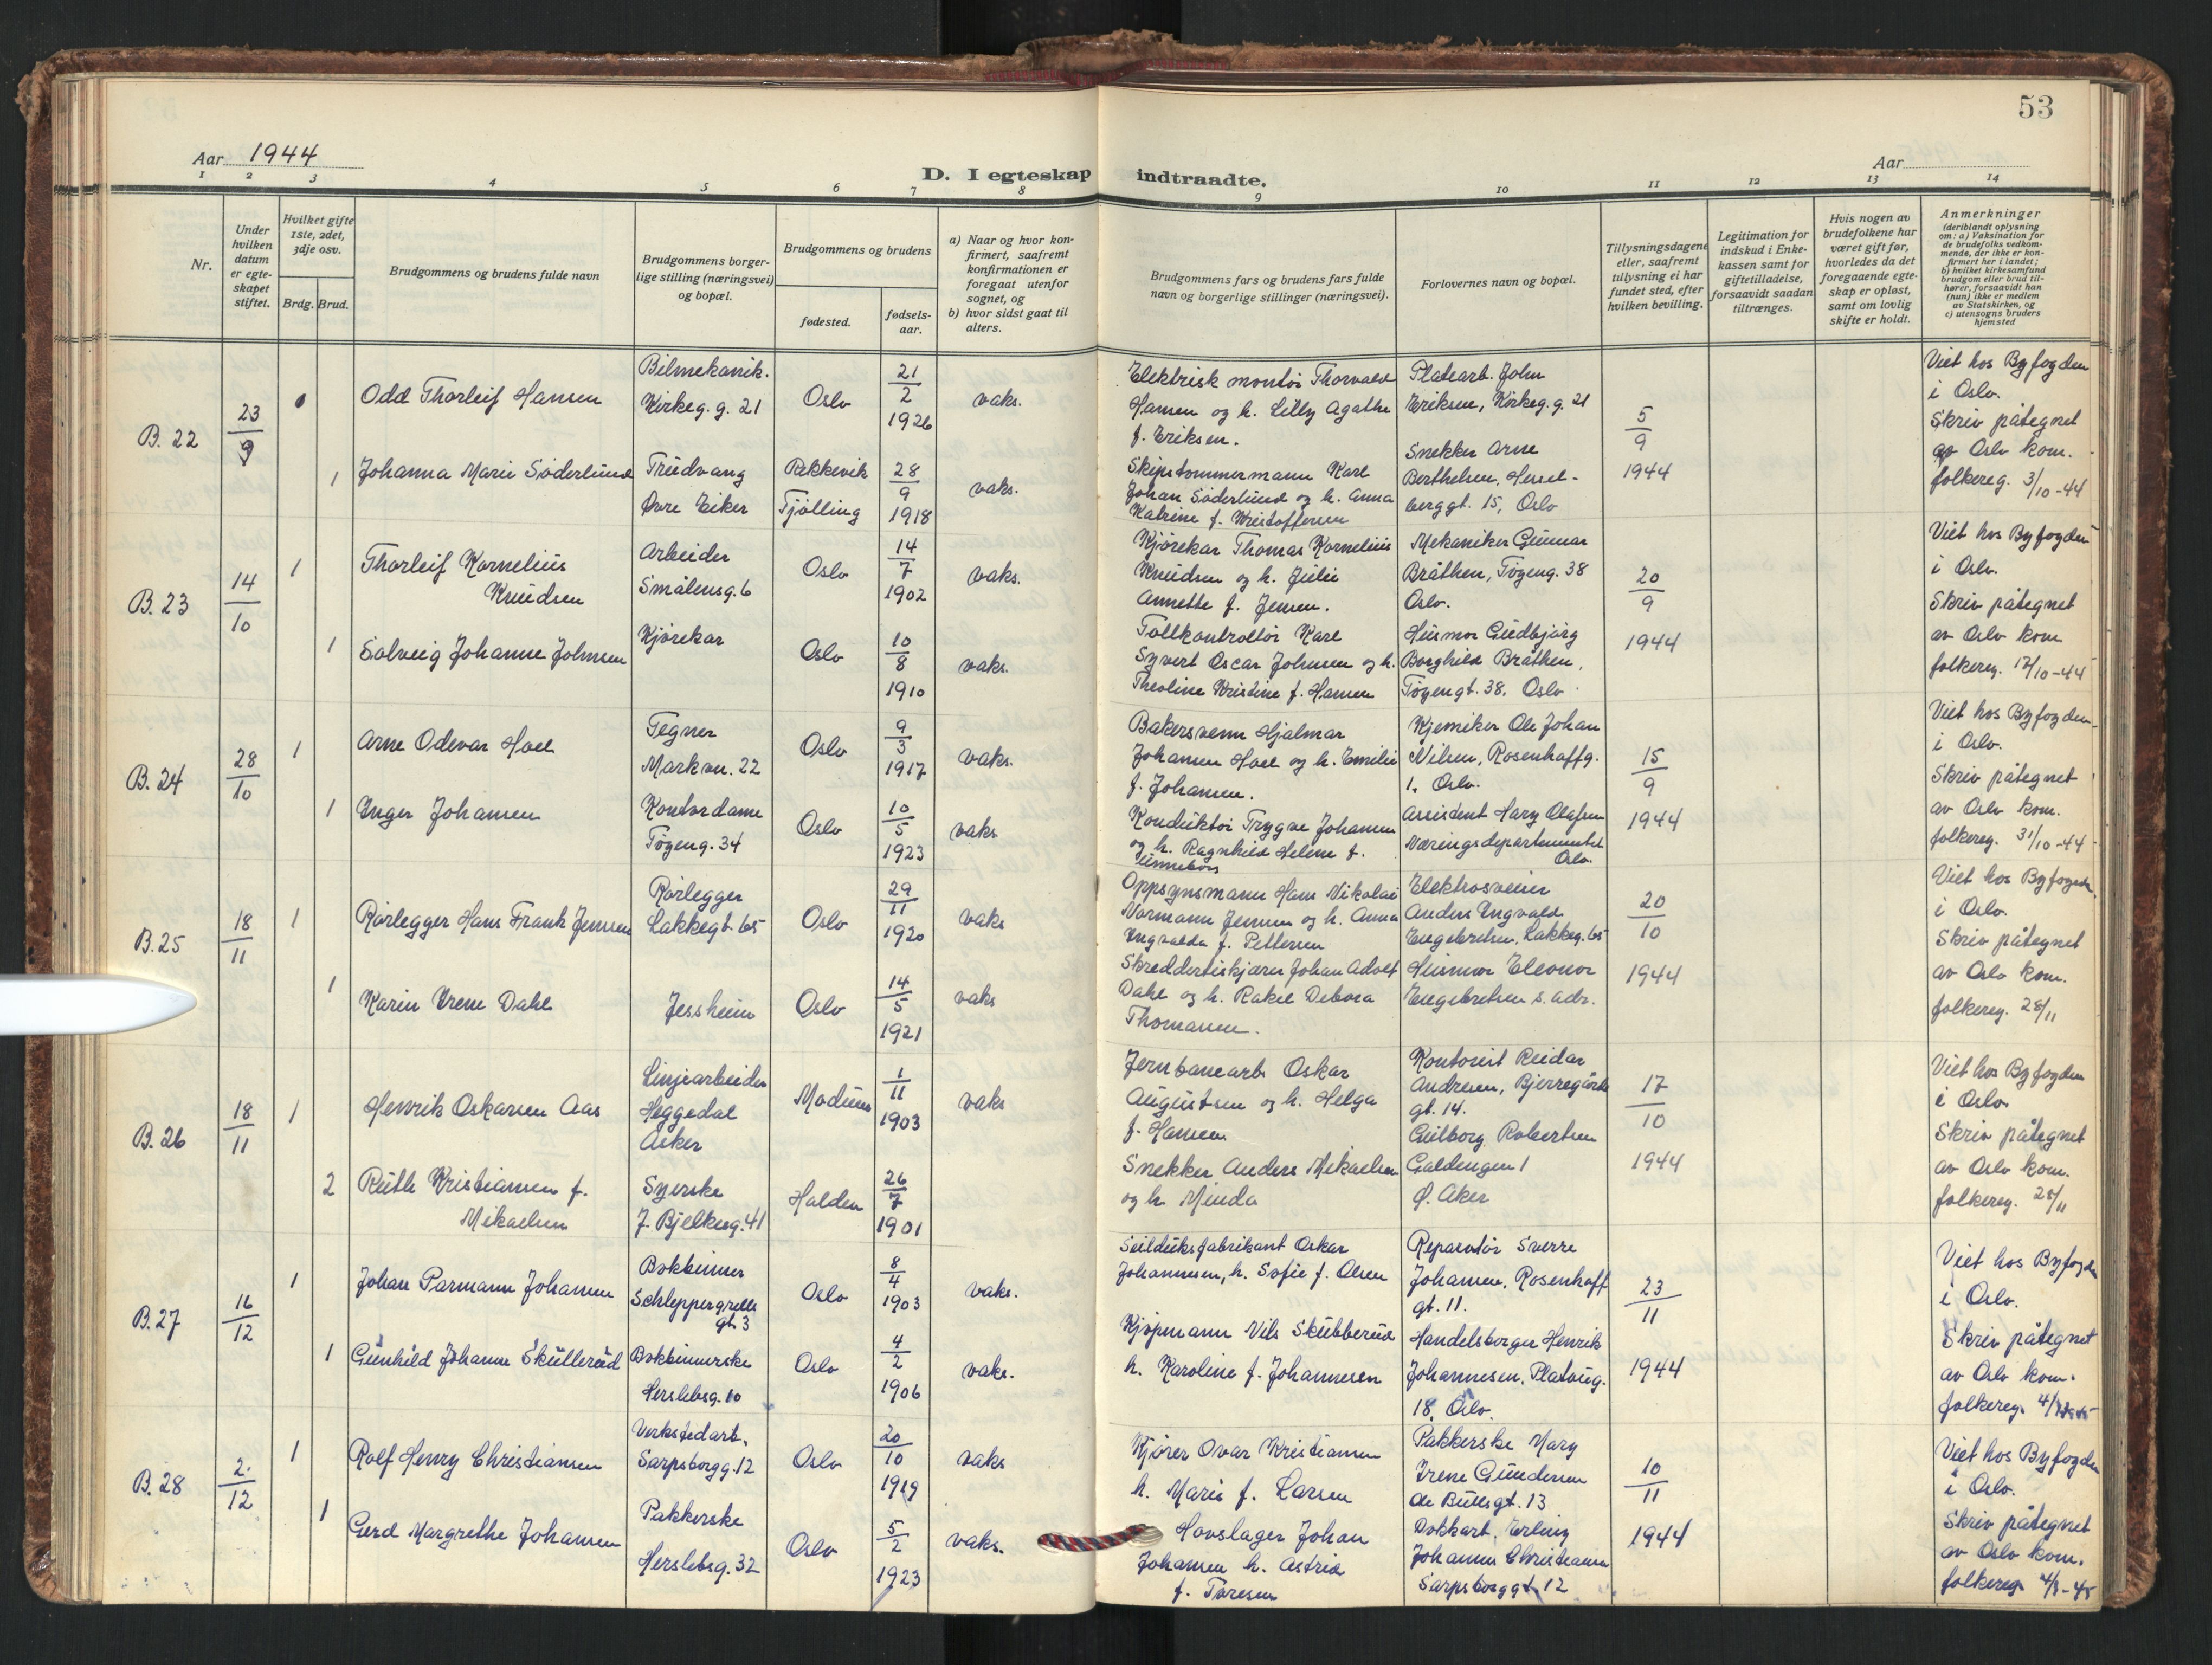 53
Aar 1944
Aar
D. I egteskap indtraadte.
1 2 3 4 5 6 7 8 9 10 11 12 13 14
Nr.
Under hvilken datum er egteskapet stiftet.
Hvilket gifte 1ste, 2det, 3dje osv.
Brdg. Brud.
Brudgommens og brudens fulde navn
Brudgommens borgerlige stilling (næringsvei) og bopæl.
Brudgommens og brudens
fødested.
fødselsaar.
a) Naar og hvor konfirmert, saafremt konfirmationen er foregaat utenfor sognet, og
b) hvor sidst gaat til alters.
Brudgommens fars og brudens fars fulde navn og borgerlige stillinger (næringsvei).
Forlovernes navn og bopæl.
Tillysningsdagene eller, saafremt tillysning ei har fundet sted, efter hvilken bevilling.
Legitimation for indskud i Enkekassen samt for giftetilladelse, forsaavidt saadan tiltrænges.
Hvis nogen av brudefolkene har været gift før, hvorledes da det foregaaende egteskap er opløst, samt om lovlig skifte er holdt.
Anmerkninger
(deriblandt oplysning om: a) Vaksination for de brudefolks vedkommende, der ikke er konfirmert her i landet; b) hvilket kirkesamfund brudgom eller brud tilhører, forsaavidt han (hun) ikke er medlem av Statskirken, og c) utensogns bruders hjemsted
B. 22
23/9
Odd Thorleif Hansen
Bilmekanik.
Kirkeg. g. 21
Oslo
21/2 1926
vaks.
Elektrisk montør Thorvald
Hansen og h. Lilly Agathe
f. Eriksen.
Platearb. John
Eriksen, Kirkeg. g. 21
5/9 1944
Viet hos Byfogden
i Oslo.
Skriv påtegnet
av Oslo kom.
folkereg. 3/10-44
1
Johanna Marie Søderlund
Trudvang
Øvre Eiker
Rekkevik
Tjølling
28/9 1918
vaks.
Skipstømmermann Karl
Johan Søderlund og h. Anna
Katrine f. Kristoffersen
Snekker Arne
Berthelsen, Hessel-
berggt. 15, Oslo
B. 23
14/10
1
Thorleif Kornelius
Knudsen
Arbeider
Smålensg. 6
Oslo
14/7 1902
vaks.
Kjørekar Thomas Kornelius
Knudsen og h. Julie
Annette f. Jensen.
Mekaniker Gunnar
Bråthen, Tøyeng. 38
Oslo.
20/9 1944
Viet hos Byfogden
i Oslo.
Skriv påtegnet
av Oslo kom
folkereg. 17/10-44
1
Solveig Johanne Johnsen
Kjørekar
Oslo
10/8 1910
vaks.
Tollkontrollør Karl
Syvert Oscar Johnsen og h.
Theoline Kristine f. Hansen
Husmor Gudbjørg
Borghild Bråthen,
Tøyengt. 38. Oslo
B. 24
28/10
1
Arne Odevar Hoel
Tegner
Markvn. 22
Oslo
9/3 1917
vaks.
Bakersvenn Hjalmar
Johansen Hoel og h. Emilie
f. Johansen.
Kjemiker Ole Johan
Nilsen, Rosenhoffg.
1, Oslo.
15/9 1944
Viet hos Byfogden
i Oslo.
Skriv påtegnet
av Oslo kom.
folkereg. 31/10-44
1
Inger Johansen
Kontordame
Tøyeng. 34
Oslo
10/5 1923
vaks
Konduktør Trygve Johansen
og h. Ragnhild Helene f.
Assistent Hary Olafsen
Næringsdepartementet
Oslo.
B. 25
18/11
1
Rørlegger Hans Frank Jensen
Rørlegger
Lakkegt. 65
Oslo
29/11 1920
vaks
Oppsynsmann Hans Nikolai
Normann Jensen og h. Anna
Ingvalda f. Pettersen
Elektrosveiser
Anders Ingvald
Engebretsen, Lakkeg. 65
20/10 1944
Viet hos Byfogden
i Oslo.
Skriv påtegnet
av Oslo kom.
folkereg. 28/11
1
Karin Irene Dahl
Jessheim
Oslo
14/5 1921
vaks
Skreddertilskjærer Johan Adolf
Dahl og h. Rakel Debora
Thomassen.
Husmor Eleonor
Engebretsen s. adr.
B. 26
18/11
1
Henrik Oskarsen Aas
Linjearbeider
Heggedal
Asker
Modum
1/11 1903
vaks
Jernbanearb. Oskar
Augustsen og h. Helga
f. Hansen
Kontorist Reidar
Andresen, Bjerregårds
gt. 14.
17/10 1944
Viet hos Byfogden
i Oslo
Skriv påtegnet
av Oslo kom.
folkereg. 28/11
2
Ruth Kristiansen f.
Mikaelsen
Syerske
J. Bjelkesg. 41
Halden
26/7 1901
Snekker Anders Mikaelsen
og h. Minda
Gulborg Robertsen
Galdengen 1
Ø. Aker
B. 27
16/12
1
Johan Parmann Johansen
Bokbinner
Schleppergrells
gt. 3
Oslo
8/4 1903
vaks.
Seilduksfabrikant Oskar
Johannesen, h. Sofie f. Olsen
Reparatør Sverre
Johansen, Rosenhoff
gt. 11.
23/11 1944
Viet hos Byfogden
i Oslo.
Skriv påtegnet
av Oslo kom.
folkereg.
1
Gunhild Johanne Skullerud
Bokbinnerske
Herslebsg. 10
Oslo
4/2 1906
vaks.
Kjøpmann Nils Skubberud
h. Karoline f. Johannesen
Handelsborger Henrik
Johannesen, Platoug.
18, Oslo.
B. 28
2./12
1
Rolf Henry Christiansen
Verkstedarb.
Sarpsborgg. 12
Oslo
20/10 1919
vaks
Kjører Ovar Kristiansen
h. Marie f. Larsen
Pakkerske Mary
Irene Gundersen
Ole Bullsgt. 13
10/11 1944
Viet hos Byfogden
i Oslo.
Skriv påtegnet
av Oslo kom.
folkereg. 4/1-45
1
Gerd Margrethe Johansen
Pakkerske
Herslebsg. 32
Oslo
5/2 1923
vaks.
Hovslager Johan
Johansen h. Astrid
f. Toresen
Dokkarb. Erling
Johannes Christiansen
Sarpsborggt. 12